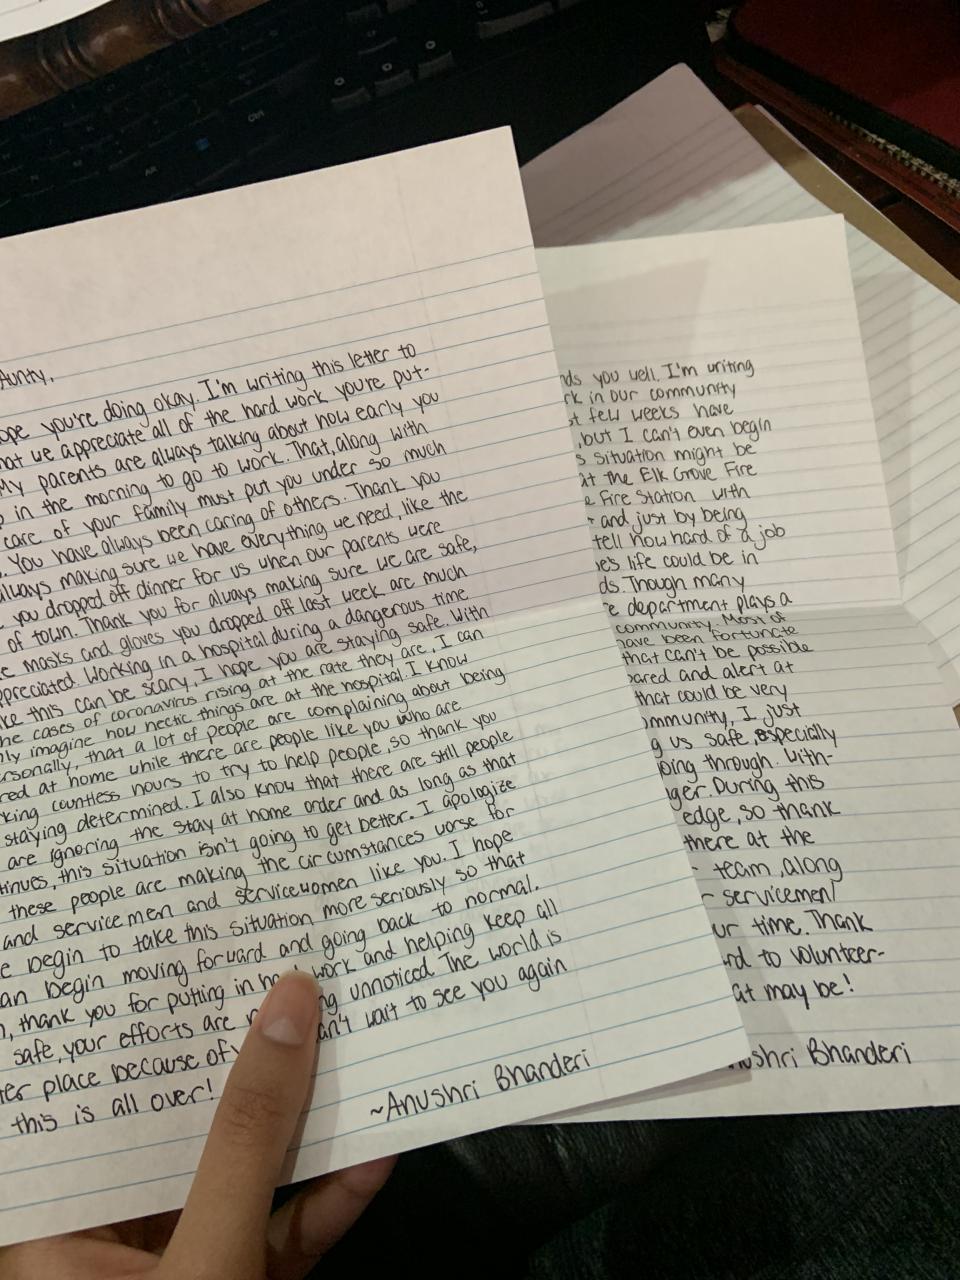 Aunty,
ope you're doing okay. I'm writing this letter to
hat we appreciate all of the hard work you're put-
My parents are always talking about how early you
p in the morning to go to work. That, along with
care of your family must put you under so much
. You have always been caring of others. Thank you
always making sure we have everything we need, like the
you dropped off dinner for us when our parents were
of town. Thank you for always making sure we are safe,
e masks and gloves you dropped off last week are much
ppreciated. Working in a hospital during a dangerous time
ke this can be scary, I hope you are staying safe. With
he cases of coronavirus rising at the rate they are, I can
ly imagine how hectic things are at the hospital. I know
ersonally, that a lot of people are complaining about being
red at home while there are people like you who are
king countless hours to try to help people, so thank you
staying determined. I also know that there are still people
are ignoring the stay at home order and as long as that
tinues, this situation isn't going to get better. I apologize
these people are making the circumstances worse for
and servicemen and servicewomen like you. I hope
e begin to take this situation more seriously so that
an begin moving forward and going back to normal.
n, thank you for putting in work and helping keep all
safe, your efforts are ng unnoticed. The world is
ter place because of an't wait to see you again
this is all over!
~Anushri Bhanderi
nds you well. I'm writing
rk in our community
st few weeks have
, but I can't even begin
s situation might be
at the Elk Grove Fire
e Fire Station with
and just by being
tell how hard of a job
es life could be in
ds. Though many
e department plays a
community. Most of
have been fortuncte
that can't be possible
pared and alert at
that could be very
mmunity, I just
g us safe, especially
oing through. With-
ger. During this
edge, so thank
there at the
team, along
r servicemen/
ur time. Thank
rd to volunteer-
at may be!
nushri Bhanderi
Ctrl